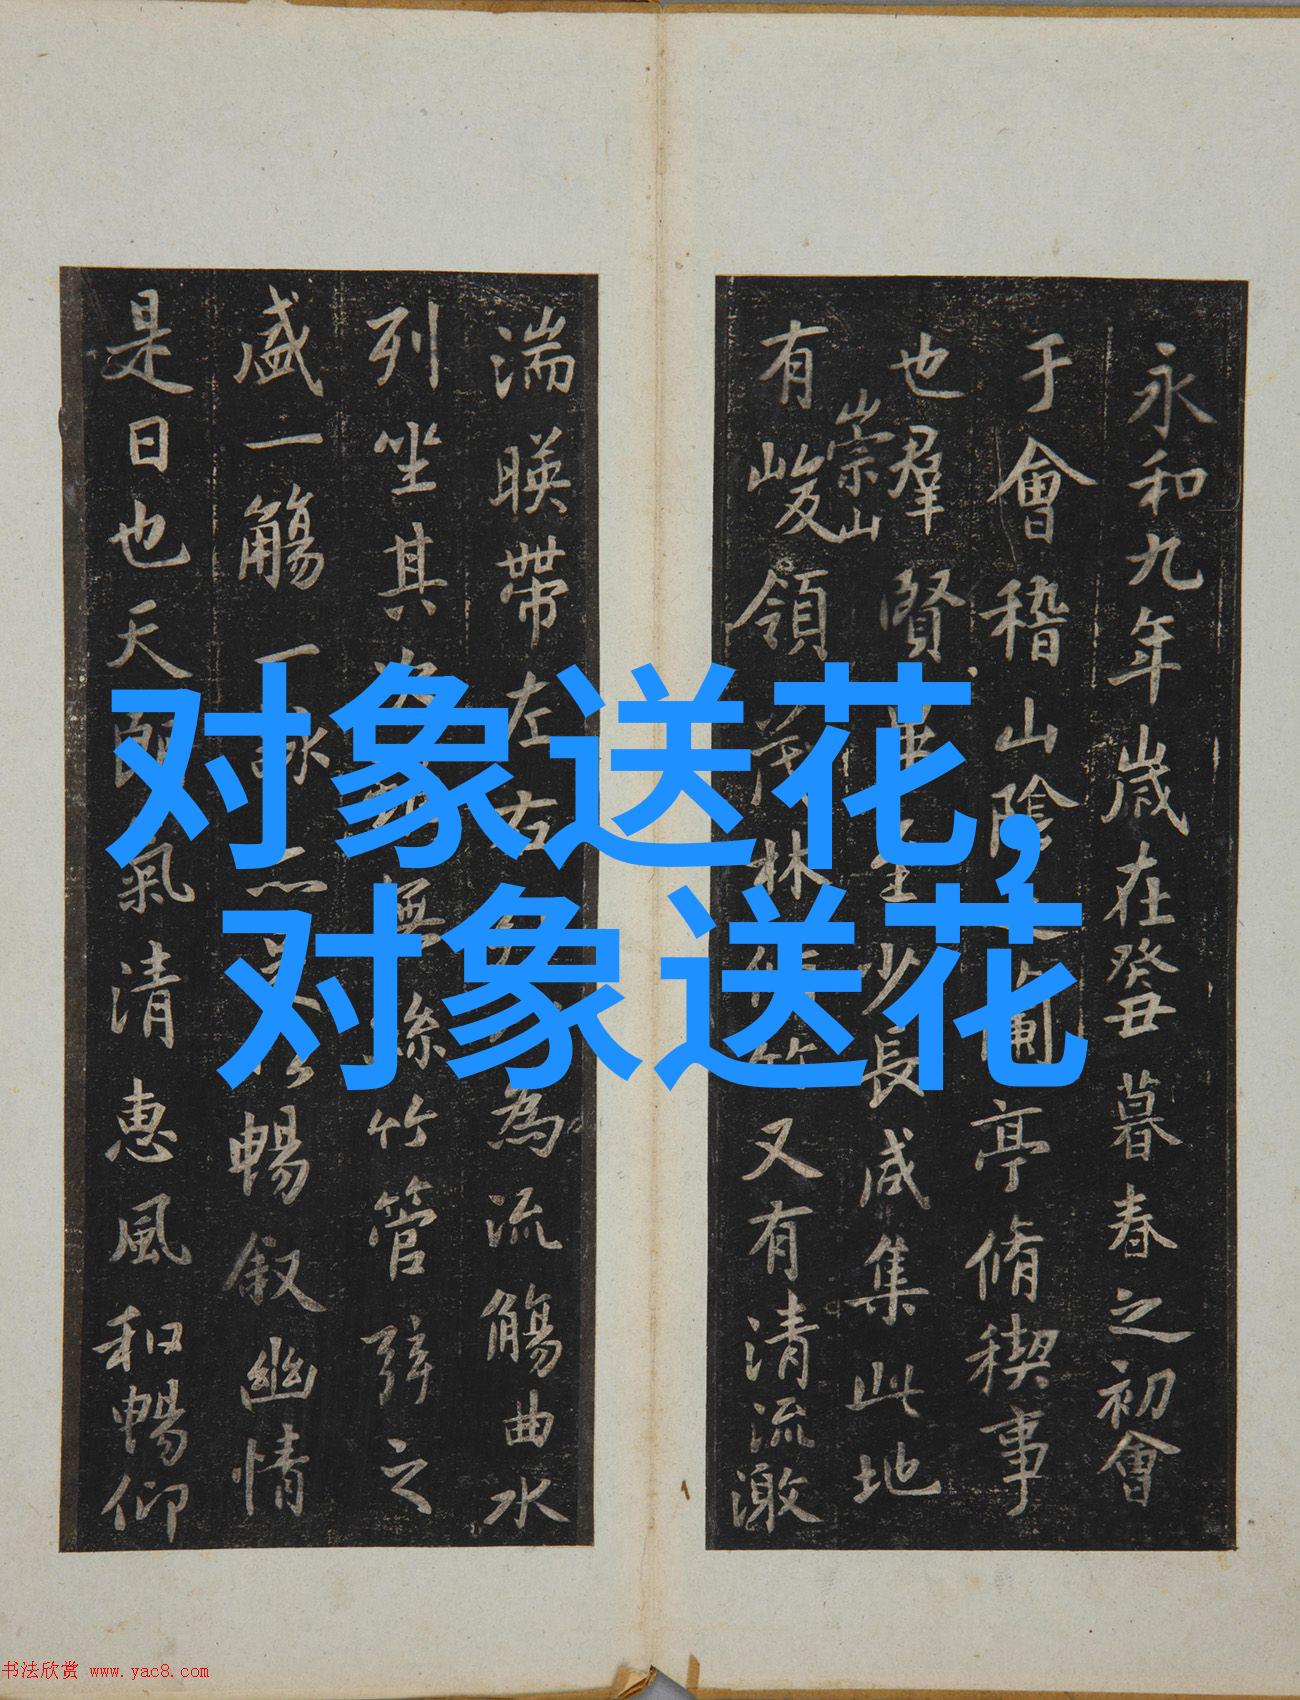 对象送花,
对象送花
永和九年歲在癸丑暮春之初會
于會稽山陰之蘭亭脩稧事
也羣賢畢至少長咸集此地
有崇山峻領茂林脩竹又有清流激
湍暎帶左右為流觴曲水
列坐其次無絲竹管弦之
盛一觴一詠亦足以暢叙幽情
是日也天朗氣清惠風和暢仰
书法欣赏 www.yac8.com